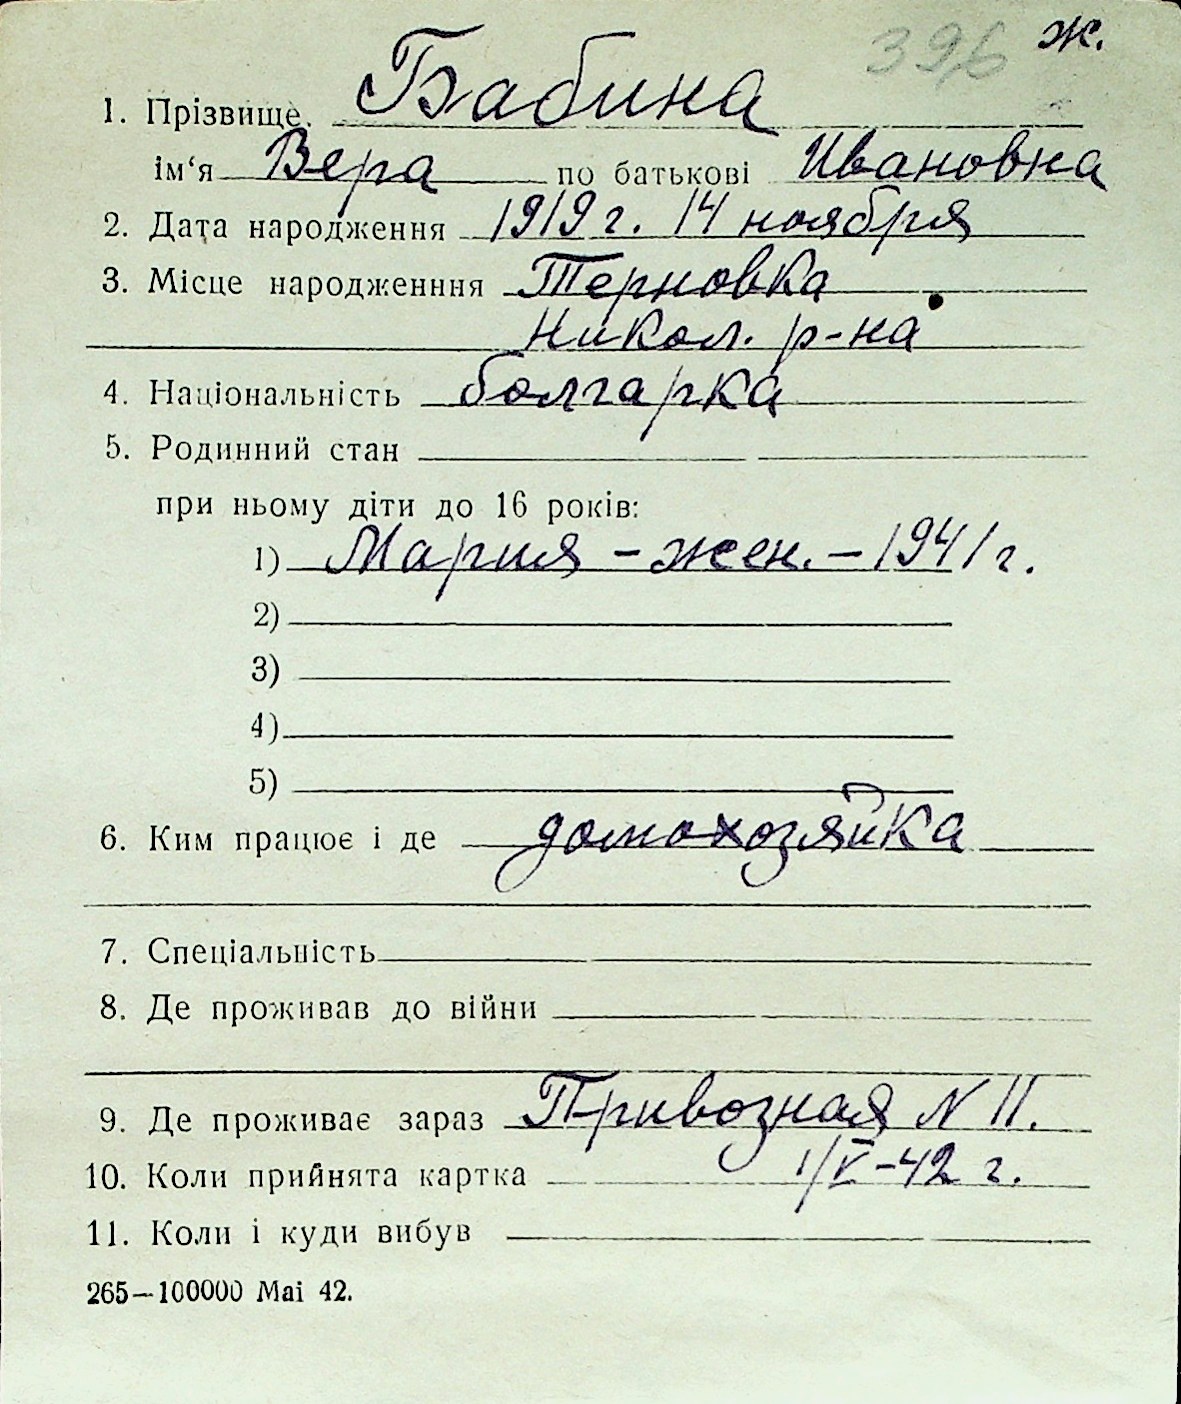 396 ж.
1. Прізвище. Бабина
ім‘я Вера по батькові Ивановна
2. Дата народження 1919 г. 14 ноября
3. Місце народженння Терновка
Никол. р-на
4. Національність болгарка
5. Родинний стан
при ньому діти до 16 років:
1) Мария – жен. – 1941 г.
2)
3)
4)
5)
6. Ким працює і де домохозяйка
7. Спеціальність
8. Де проживав до війни
9. Де проживає зараз Привозная N 11.
10. Коли прийнята картка 1/V – 42 г.
11. Коли і куди вибув
265—100000 Mai 42.